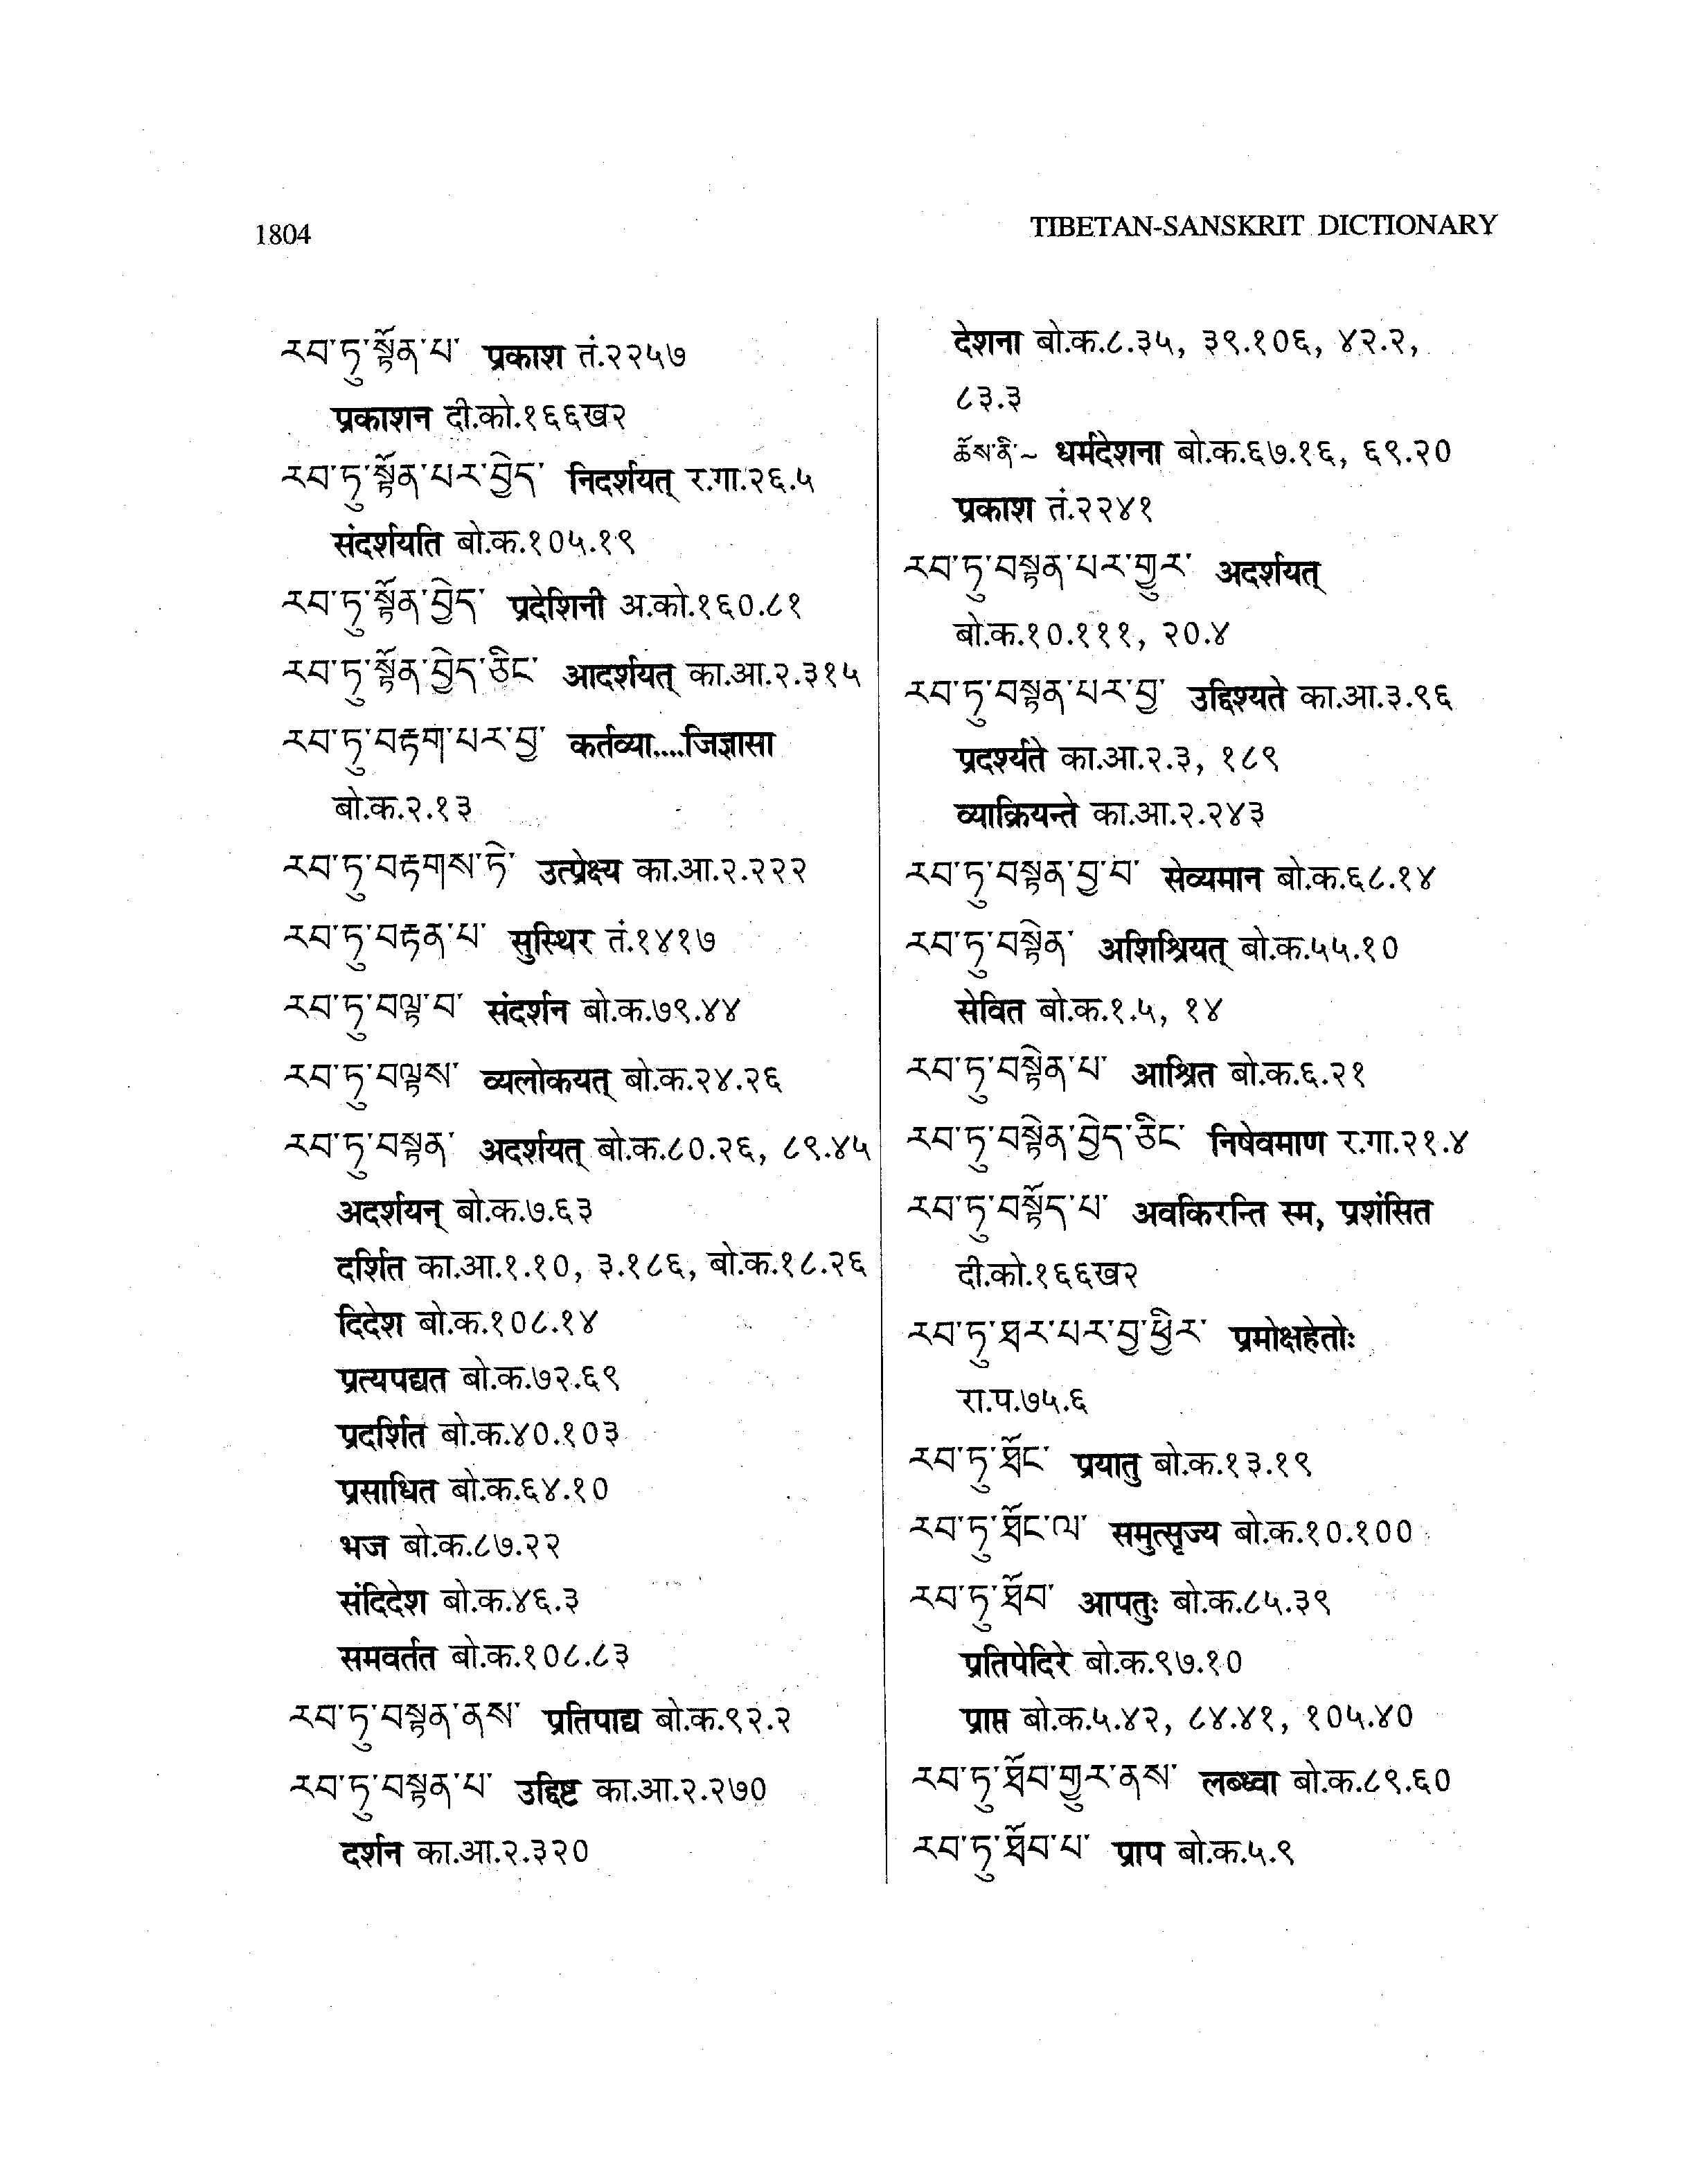 1804
TIBETAN-SANSKRIT DICTIONARY
རབ་ཏུ་སྟོན་པ་ प्रकाश तं.२२५७
प्रकाशन दी.को.१६६ख२
རབ་ཏུ་སྟོན་པར་བྱེད་ निदर्शयत् र.गा.२६.५
संदर्शयति बो.क.१०५.१९
རབ་ཏུ་སྟོན་བྱེད་ प्रदेशिनी अ.को.१६०.८१
རབ་ཏུ་སྟོན་བྱེད་ཅིང་ आदर्शयत् का.आ.२.३१५
རབ་ཏུ་བརྟག་པར་བྱ་ कर्तव्या....जिज्ञासा
बो.क.२.१३
རབ་ཏུ་བརྟགས་ཏེ་ उत्प्रेक्ष्य का.आ.२.२२२
རབ་ཏུ་བརྟན་པ་ सुस्थिर तं.१४१७
རབ་ཏུ་བལྟ་བ་ संदर्शन बो.क.७९.४४
རབ་ཏུ་བལྟས་ व्यलोकयत् बो.क.२४.२६
རབ་ཏུ་བསྟན་ अदर्शयत् बो.क.८०.२६, ८९.४५
अदर्शयन् बो.क.७.६३
दर्शित का.आ.१.१०, ३.१८६, बो.क.१८.२६
दिदेश बो.क.१०८.१४
प्रत्यपद्यत बो.क.७२.६९
प्रदर्शित बो.क.४०.१०३
प्रसाधित बो.क.६४.१०
भज बो.क.८७.२२
संदिदेश बो.क.४६.३
समवर्तत बो.क.१०८.८३
རབ་ཏུ་བསྟན་ནས་ प्रतिपाद्य बो.क.९२.२
རབ་ཏུ་བསྟན་པ་ उद्दिष्ट का.आ.२.२७०
दर्शन का.आ.२.३२०
देशना बो.क.८.३५, ३९.१०६, ४२.२,
८३.३
ཆོས་ནི་~ धर्मदेशना बो.क.६७.१६, ६९.२०
प्रकाश तं.२२४१
རབ་ཏུ་བསྟན་པར་གྱུར་ अदर्शयत्
बो.क.१०.१११, २०.४
རབ་ཏུ་བསྟན་པར་བྱ་ उद्दिश्यते का.आ.३.९६
प्रदर्श्यते का.आ.२.३, १८९
व्याक्रियन्ते का.आ.२.२४३
རབ་ཏུ་བསྟན་བྱ་བ་ सेव्यमान बो.क.६८.१४
རབ་ཏུ་བསྟེན་ अशिश्रियत् बो.क.५५.१०
सेवित बो.क.१.५, १४
རབ་ཏུ་བསྟེན་པ་ आश्रित बो.क.६.२१
རབ་ཏུ་བསྟེན་བྱེད་ཅིང་ निषेवमाण र.गा.२१.४
རབ་ཏུ་བསྟོད་པ་ अवकिरन्ति स्म, प्रशंसित
दी.को.१६६ख२
རབ་ཏུ་ཐར་པར་བྱ་ཕྱིར་ प्रमोक्षहेतोः
रा.प.७५.६
རབ་ཏུ་ཐོང་ प्रयातु बो.क.१३.१९
རབ་ཏུ་ཐོང་ལ་ समुत्सृज्य बो.क.१०.१००
རབ་ཏུ་ཐོབ་ आपतुः बो.क.८५.३९
प्रतिपेदिरे बो.क.९७.१०
प्राप्त बो.क.५.४२, ८४.४१, १०५.४०
རབ་ཏུ་ཐོབ་གྱུར་ནས་ लब्ध्वा बो.क.८९.६०
རབ་ཏུ་ཐོབ་པ་ प्राप बो.क.५.९